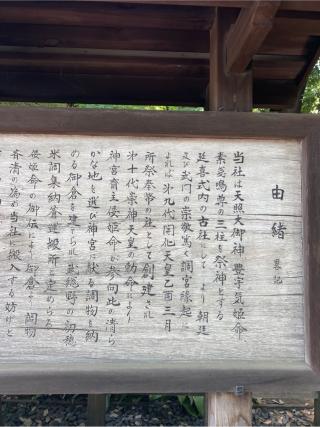 由緒 畧記
当社は天照大御神豊宇気姫命
素盞嗚尊の三柱を祭神とする
延喜式内の古社にしてより朝廷
及び武門の崇敬篤く調宮縁起に
よれば第九代開化天皇乙酉三月
所祭奉幣の社として創建され
第十代崇神天皇の勅命により
神宮斎主倭姫命が参向此の清ら
かな地を選び神宮に献る調物を納
める御倉を建てられ武総野の初穂
米調集納倉運搬所と定めらる
倭姫命の御伝により御倉より調物
斉清の為め当社に搬入する妨げと